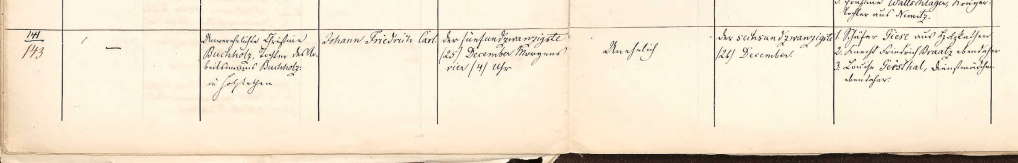 3. Louise Wattschlager, Krüger-
tochter aus Nemitz.
141
143
—
Unverehelichte Christine
Buchholz, Tochter des Ar-
beitsmanns Buchholz
in Holzkathen
Johann Friedrich Carl
der fünfundzwanzigste
(25) December Morgens
vier (4) Uhr
Unehelich
der sechsundzwanzigste
(26) December.
1. Schäfer Giese aus Holzkathen
2. Knecht Friedrich Kratz ebendaher
3. Louise Gersthal, Dienstmädchen
ebendaher.